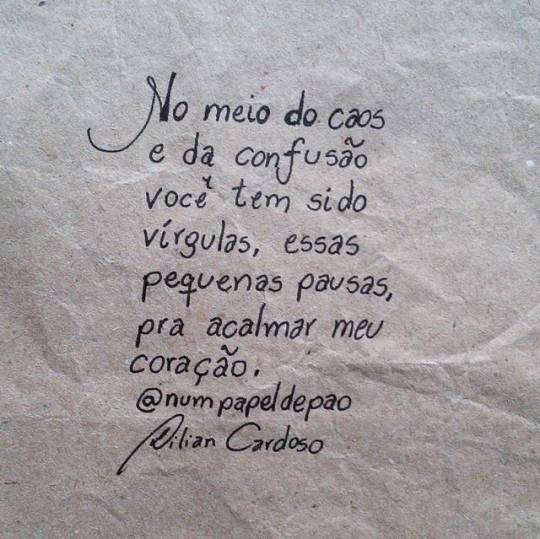 No meio do caos
e da confusão
você tem sido
vírgulas, essas
pequenas pausas,
pra acalmar meu
coração.
@numpapeldepao
Lilian Cardoso